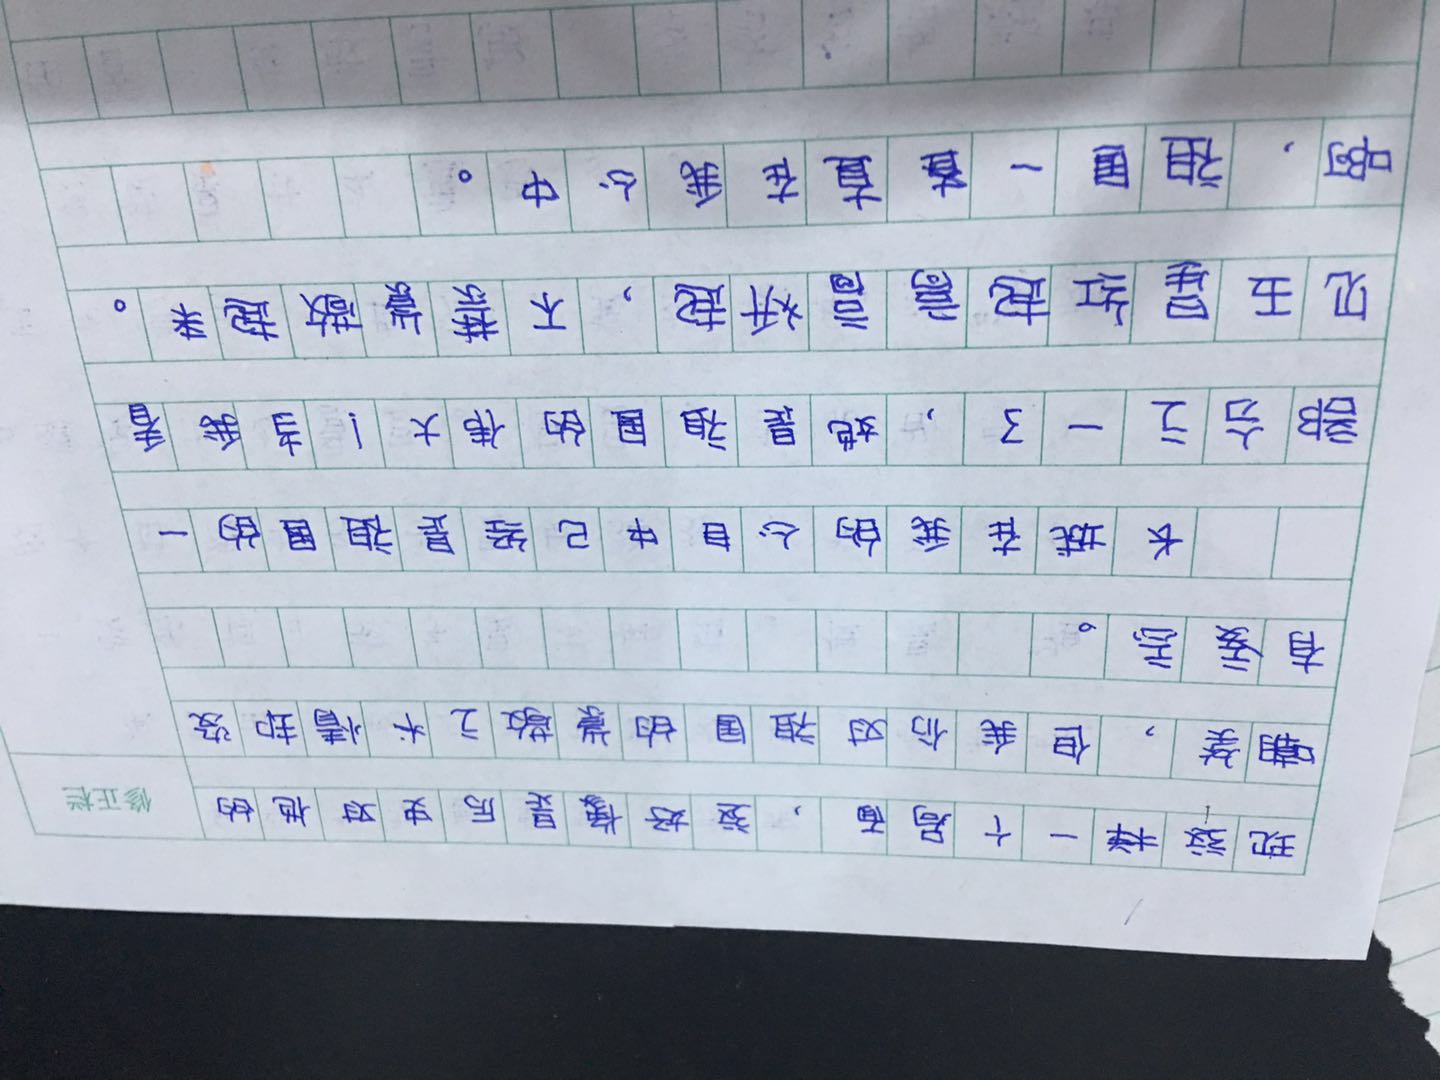 现这样一个局面，这好像是历史对他的
嘲笑，但我们对祖国的崇敬之情却没
有变。
长城在我的心目中已经是祖国的一
部分之一了，她是祖国的伟大！当我看
见五星红起高高升起，不禁崇敬起来。
啊，祖国一直在我心中。
修正栏